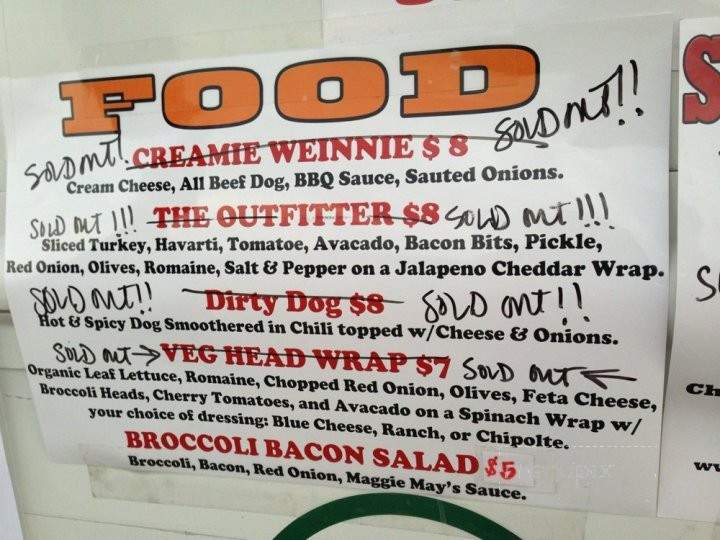 FOOD
SOLD OUT!. CREAMIE WEINNIE $ 8 SOLD OUT!!
Cream Cheese, All Beef Dog, BBQ Sauce, Sauted Onions.
SOLD OUT !!! THE OUTFITTER $8 SOLD OUT !!!
Sliced Turkey, Havarti, Tomatoe, Avacado, Bacon Bits, Pickle,
Red Onion, Olives, Romaine, Salt & Pepper on a Jalapeno Cheddar Wrap.
SOLD OUT!! Dirty Dog $8 SOLD OUT!!
Hot & Spicy Dog Smoothered in Chili topped w/Cheese & Onions.
SOLD OUT → VEG HEAD WRAP $7 SOLD OUT ←
Organic Leaf Lettuce, Romaine, Chopped Red Onion, Olives, Feta Cheese,
Broccoli Heads, Cherry Tomatoes, and Avacado on a Spinach Wrap w/
your choice of dressing: Blue Cheese, Ranch, or Chipolte.
BROCCOLI BACON SALAD $5
Broccoli, Bacon, Red Onion, Maggie May's Sauce.